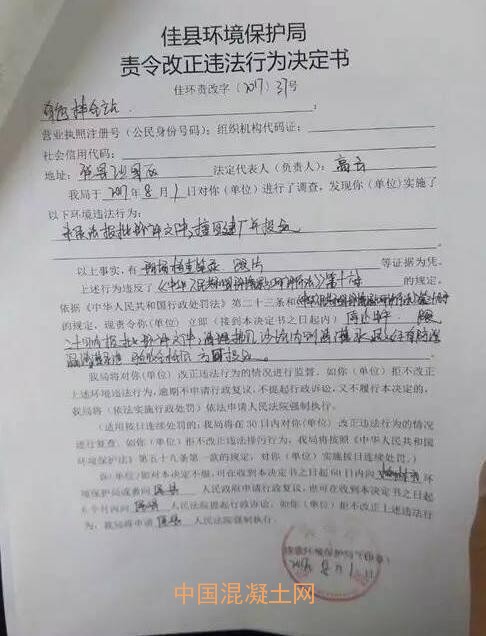 佳县环境保护局
责令改正违法行为决定书
佳环责改字〔2017〕37号
拌合站:
营业执照注册号(公民身份号码):组织机构代码证:
社会信用代码:
地址: 法定代表人(负责人):高云
我局于2017年8月1日对你(单位)进行了调查,发现你(单位)实施了
以下环境违法行为:
未依法报批环评文件,擅自建厂并投产
以上事实,有现场检查笔录 照片 等证据为凭。
上述行为违反了《中华人民共和国环境影响评价法》第 条 的规定。
依据《中华人民共和国行政处罚法》第二十三条和
的规定,现责令你(单位)立即(接到本决定书之日起内)停止生产
报批环评文件
验收合格后方可投产
我局将对你(单位)改正违法行为的情况进行监督。如你(单位)拒不改正
上述环境违法行为,逾期不申请行政复议,不提起行政诉讼,又不履行本决定的,
我局将(依法实施行政处罚)依法申请人民法院强制执行。
(适用按日连续处罚的,我局将在30日内对你(单位)改正违法行为的情况
进行复查。如你(单位)拒不改正违法排污行为,我局将按照《中华人民共和国
环境保护法》第五十九条第一款的规定,对你(单位)实施按日连续处罚。)
你(单位)如对本决定不服,可在收到本决定书之日起60日内向 环
境保护局或者向佳县人民政府申请行政复议,也可在收到本决定书之日起
6个月内向佳县人民法院提起行政诉讼。如你(单位)拒不改正上述违法行
为,我局将申请佳县人民法院强制执行。
佳县环境保护局(印章)
2017年8月1日
中国混凝土网